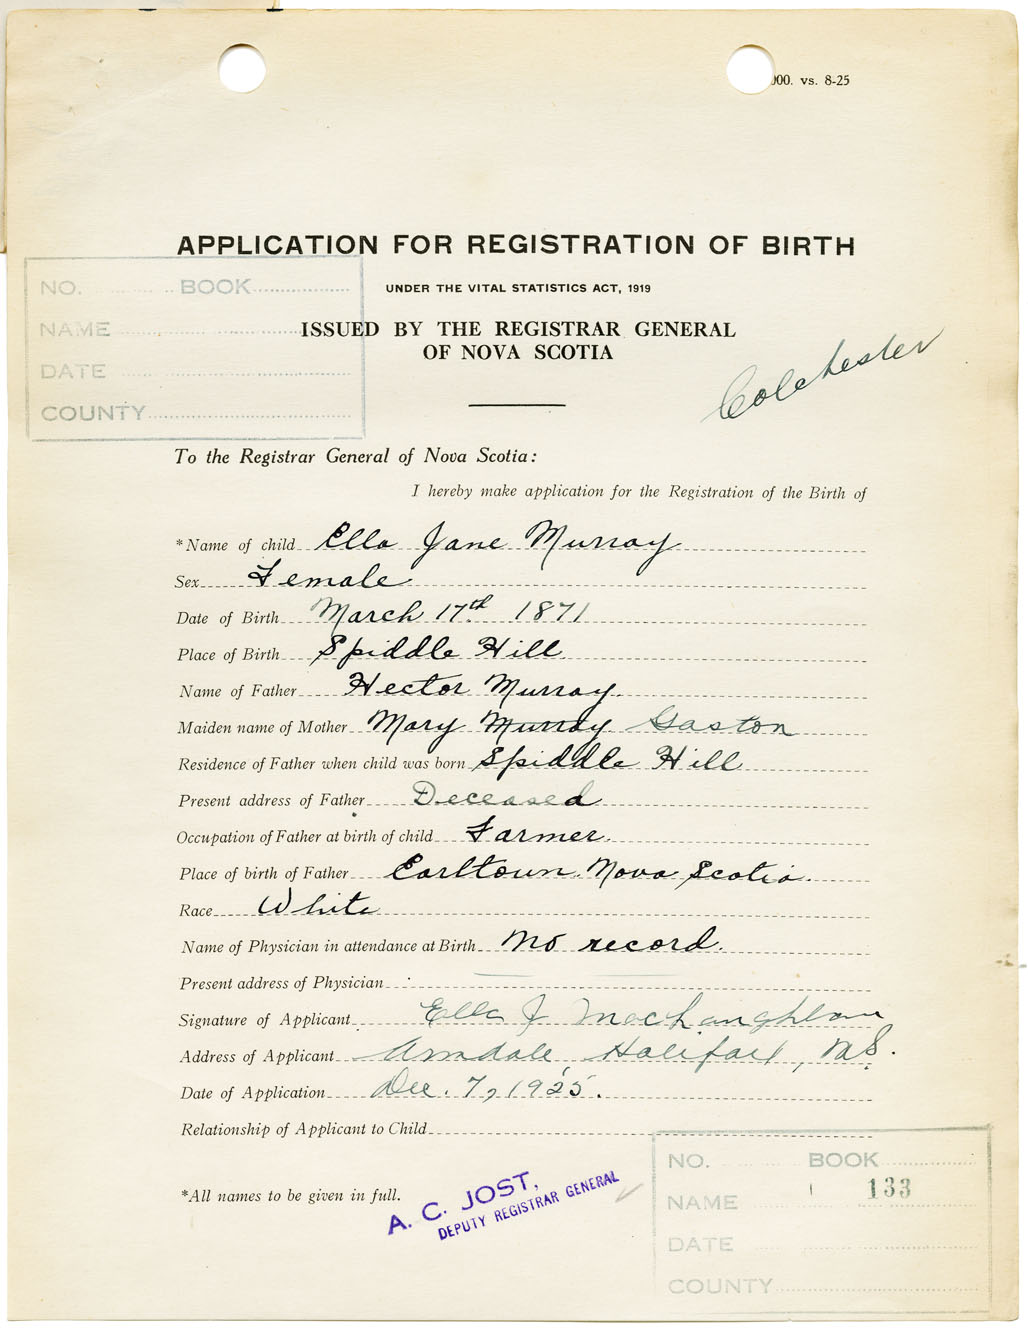 000. vs. 8-25
APPLICATION FOR REGISTRATION OF BIRTH
UNDER THE VITAL STATISTICS ACT, 1919
ISSUED BY THE REGISTRAR GENERAL
OF NOVA SCOTIA
NO. BOOK
NAME
DATE
COUNTY
Colchester
To the Registrar General of Nova Scotia:
I hereby make application for the Registration of the Birth of
*Name of child Ella Jane Murray
Sex Female
Date of Birth March 17th 1871
Place of Birth Spiddle Hill
Name of Father Hector Murray.
Maiden name of Mother Mary Murray Gaston
Residence of Father when child was born Spiddle Hill
Present address of Father Deceased
Occupation of Father at birth of child Farmer.
Place of birth of Father Earltown. Nova Scotia.
Race White
Name of Physician in attendance at Birth No record.
Present address of Physician
Signature of Applicant Ella J MacNaughton
Address of Applicant Armdale, Halifax, N.S.
Date of Application Dec. 7, 1925.
Relationship of Applicant to Child
*All names to be given in full.
A. C. JOST,
DEPUTY REGISTRAR GENERAL
NO. BOOK
NAME 133
DATE
COUNTY